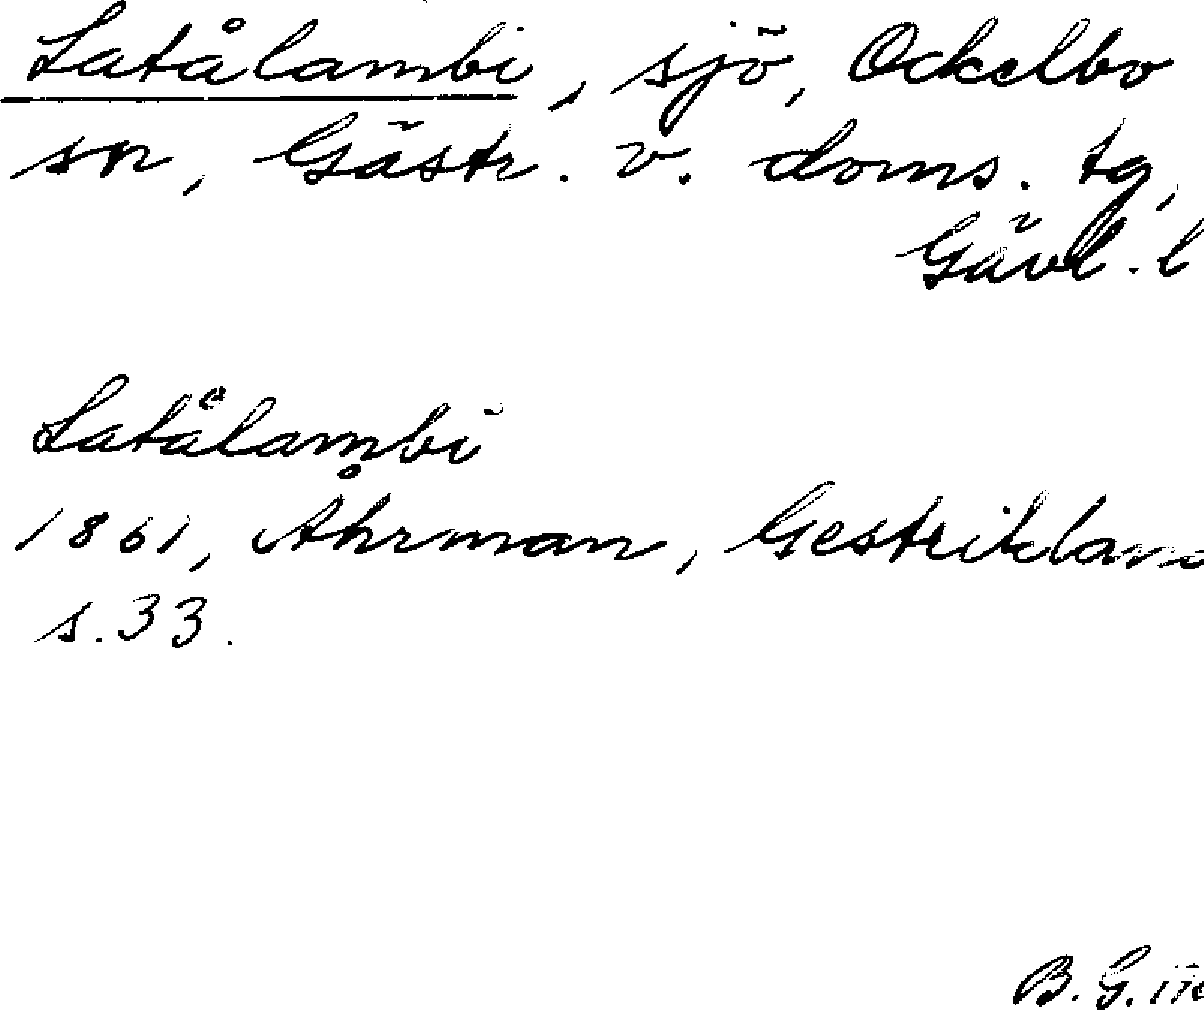 Latålambi, sjö, Ockelbo
sn, Gästr. v. doms. tg,
Gävl. l
Latålambi
1861, Åhrman, Gestrikland
s. 33.
B. G.